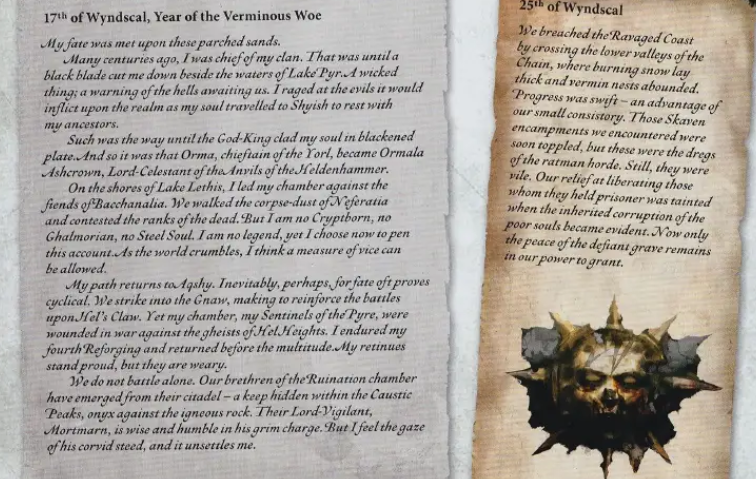 17th of Wyndscal, Year of the Verminous Woe
My fate was met upon these parched sands.
Many centuries ago, I was chief of my clan. That was until a
black blade cut me down beside the waters of Lake Pyr. A wicked
thing; a warning of the hells awaiting us. I raged at the evils it would
inflict upon the realm as my soul travelled to Shyish to rest with
my ancestors.
Such was the way until the God-King clad my soul in blackened
plate. And so it was that Orma, chieftain of the Torl, became Ormala
Ashcrown, Lord-Celestant of the Anvils of the Heldenhammer.
On the shores of Lake Lethis, I led my chamber against the
fiends of Bacchanalia. We walked the corpse-dust of Neferatia
and contested the ranks of the dead. But I am no Cryptborn, no
Ghalmorian, no Steel Soul. I am no legend, yet I choose now to pen
this account. As the world crumbles, I think a measure of vice can
be allowed.
My path returns to Aqshy. Inevitably, perhaps, for fate oft proves
cyclical. We strike into the Gnaw, making to reinforce the battles
upon Hel's Claw. Yet my chamber, my Sentinels of the Pyre, were
wounded in war against the gheists of Hel Heights. I endured my
fourth Reforging and returned before the multitude. My retinues
stand proud, but they are weary.
We do not battle alone. Our brethren of the Ruination chamber
have emerged from their citadel – a keep hidden within the Caustic
Peaks, onyx against the igneous rock. Their Lord-Vigilant,
Mortmarn, is wise and humble in his grim charge. But I feel the gaze
of his corvid steed, and it unsettles me.
25th of Wyndscal
We breached the Ravaged Coast
by crossing the lower valleys of the
Chain, where burning snow lay
thick and vermin nests abounded.
Progress was swift – an advantage of
our small consistory. Those Skaven
encampments we encountered were
soon toppled, but these were the dregs
of the ratman horde. Still, they were
vile. Our relief at liberating those
whom they held prisoner was tainted
when the inherited corruption of the
poor souls became evident. Now only
the peace of the defiant grave remains
in our power to grant.